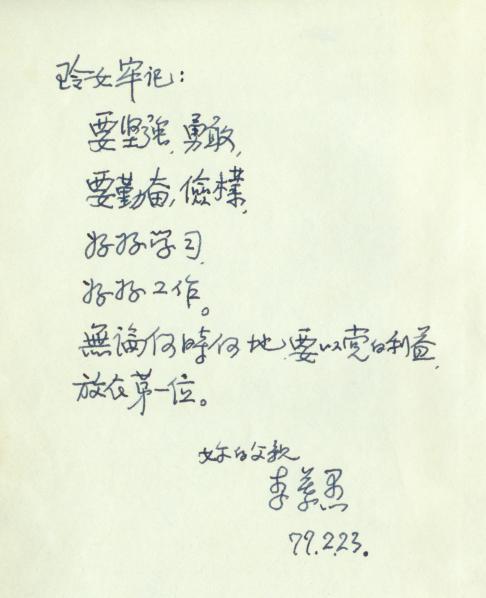 玲女牢记：
要坚强，勇敢，
要勤奋，儉樸，
好好学习，
好好工作。
無論何時何地，要以党的利益，
放在第一位。
妳的父親
李
79.2.23.